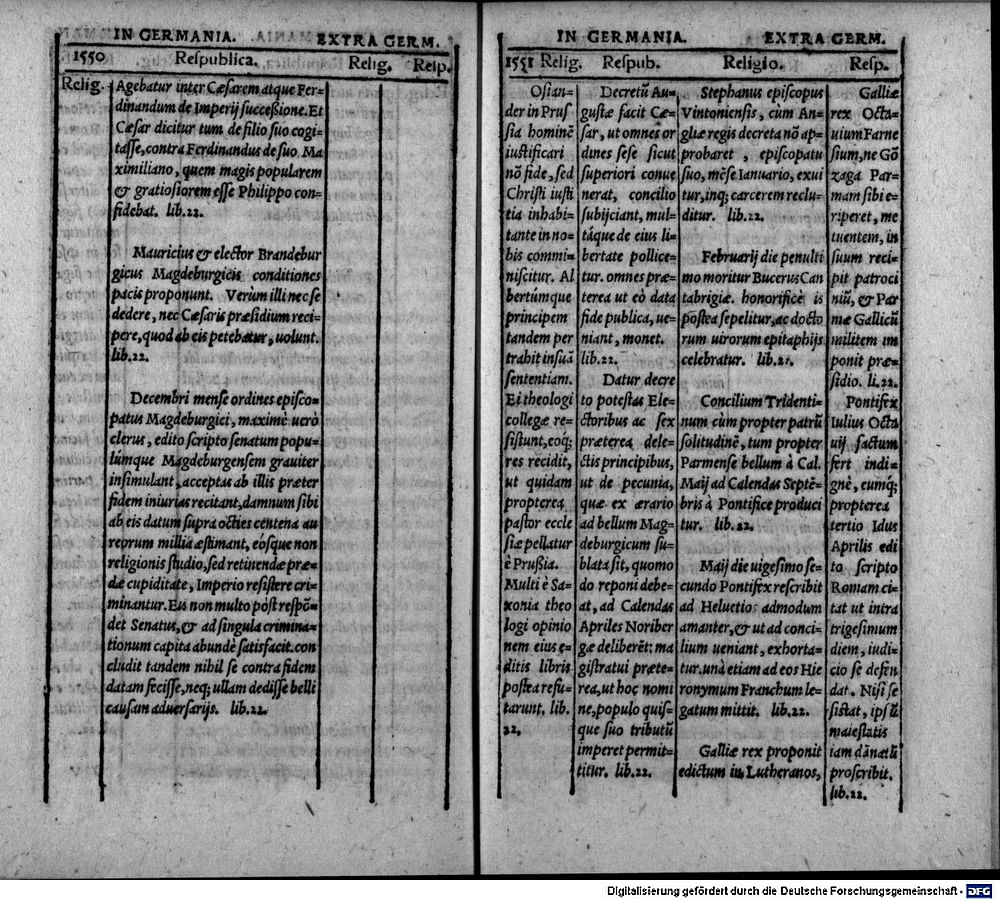 IN GERMANIA. EXTRA GERM.
1550 Respublica. Relig. Resp.
Relig.
Agebatur inter Cæsarem atque Fer-
dinandum de Imperij succeßione. Et
Cæsar dicitur tum de filio suo cogi-
tasse, contra Ferdinandus de suo Ma
ximiliano, quem magis popularem
& gratiosiorem esse Philippo con-
fidebat. lib. 22.
Mauricius & elector Brandebur
gicus Magdeburgicis conditiones
pacis proponunt. Verùm illi nec se
dedere, nec Cæsaris præsidium reci-
pere, quod ab eis petebatur, uolunt.
lib. 22.
Decembri mense ordines episco-
patus Magdeburgici, maximè uerò
clerus, edito scripto senatum popu-
lúmque Magdeburgensem grauiter
insimulant, acceptas ab illis præter
fidem iniurias recitant, damnum sibi
ab eis datum supra octies centena au
reorum millia æstimant, eósque non
religionis studio, sed retinendæ præ-
dæ cupiditate, Imperio resistere cri-
minantur. Eis non multo pòst respō-
det Senatus, & ad singula crimina-
tionum capita abundè satisfacit. con
cludit tandem nihil se contra fidem
datam fecisse, neq; ullam dedisse belli
causam aduersarijs. lib. 22.
IN GERMANIA. EXTRA GERM.
1551 Relig. Respub. Religio. Resp.
Osian-
der in Prus
sia hominē
iustificari
nō fide, sed
Christi iusti
tia inhabi-
tante in no-
bis commi-
niscitur. Al
bertúmque
principem
tandem per
trahit in suā
sententiam.
Ei theologi
collegæ re-
sistunt, eoq;
res recidit,
ut quidam
propterea
pastor eccle
siæ pellatur
è Prußia.
Multi è Sa-
xonia theo
logi opinio
nem eius e-
ditis libris
postea refu-
tarunt. lib.
22.
Decretū Au-
gustæ facit Cæ-
sar, ut omnes or
dines sese sicut
superiori conue
nerat, concilio
subijciant, mul-
táque de eius li-
bertate pollice-
tur. omnes præ-
terea ut eò data
fide publica, ue-
niant, monet.
lib. 22.
Datur decre
to potestas Ele-
ctoribus ac sex
præterea dele-
ctis principibus,
ut de pecunia,
quæ ex ærario
ad bellum Mag-
deburgicum su-
blata sit, quomo
do reponi debe-
at, ad Calendas
Apriles Noriber
gæ deliberēt: ma
gistratui præte-
rea, ut hoc nomi
ne, populo quis-
que suo tributū
imperet permit-
titur. lib. 22.
Stephanus episcopus
Vintoniensis, cùm An-
gliæ regis decreta nō ap-
probaret, episcopatu
suo, mēse Ianuario, exui
tur, inq; carcerem reclu-
ditur. lib. 22.
Februarij die penulti
mo moritur Bucerus Can
tabrigiæ. honorificè is
postea sepelitur, ac docto
rum uirorum epitaphijs
celebratur. lib. 21.
Concilium Tridenti-
num cùm propter patrū
solitudinē, tum propter
Parmense bellum à Cal.
Maij ad Calendas Septē-
bris à Pontifice produci
tur. lib. 22.
Maij die uigesimo se-
cundo Pontifex rescribit
ad Heluetios admodum
amanter, & ut ad conci-
lium ueniant, exhorta-
tur. unà etiam ad eos Hie
ronymum Franchum le-
gatum mittit. lib. 22.
Galliæ rex proponit
edictum in Lutheranos,
Galliæ
rex Octa-
uium Farne
sium, ne Gō
zaga Par-
mam sibi e-
riperet, me
tuentem, in
suum reci-
pit patroci
niū, & Par
mæ Gallicū
militem im
ponit præ-
sidio. li. 22.
Pontifex
Iulius Octa
uij factum
fert indi-
gnè, eumq;
propterea
tertio Idus
Aprilis edi
to scripto
Romam ci-
tat ut intra
trigesimum
diem, iudi-
cio se defen
dat. Nisi se
sistat, ipsū
maiestatis
iam dānatū
proscribit.
lib. 22.
Digitalisierung gefördert durch die Deutsche Forschungsgemeinschaft - DFG